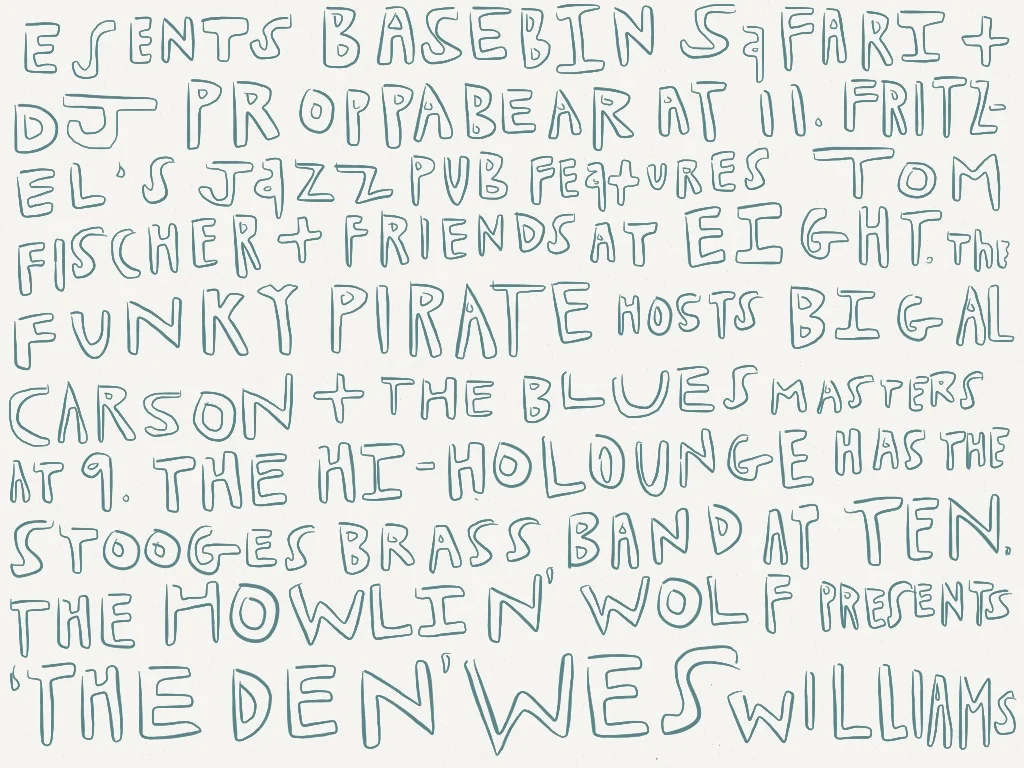 ESENTS BASEBIN SaFARI +
DJ PROPPABEAR AT 11. FRITZ-
EL'S JaZZ PUB FEaTURES TOM
FISCHER + FRIENDS AT EIGHT. THE
FUNKY PIRATE HOSTS BIG AL
CARSON + THE BLUES MASTERS
AT 9. THE HI-HOLOUNGE HAS THE
STOOGES BRASS BAND AT TEN.
THE HOWLIN' WOLF PRESENTS
'THE DEN' WES WILLIAMS